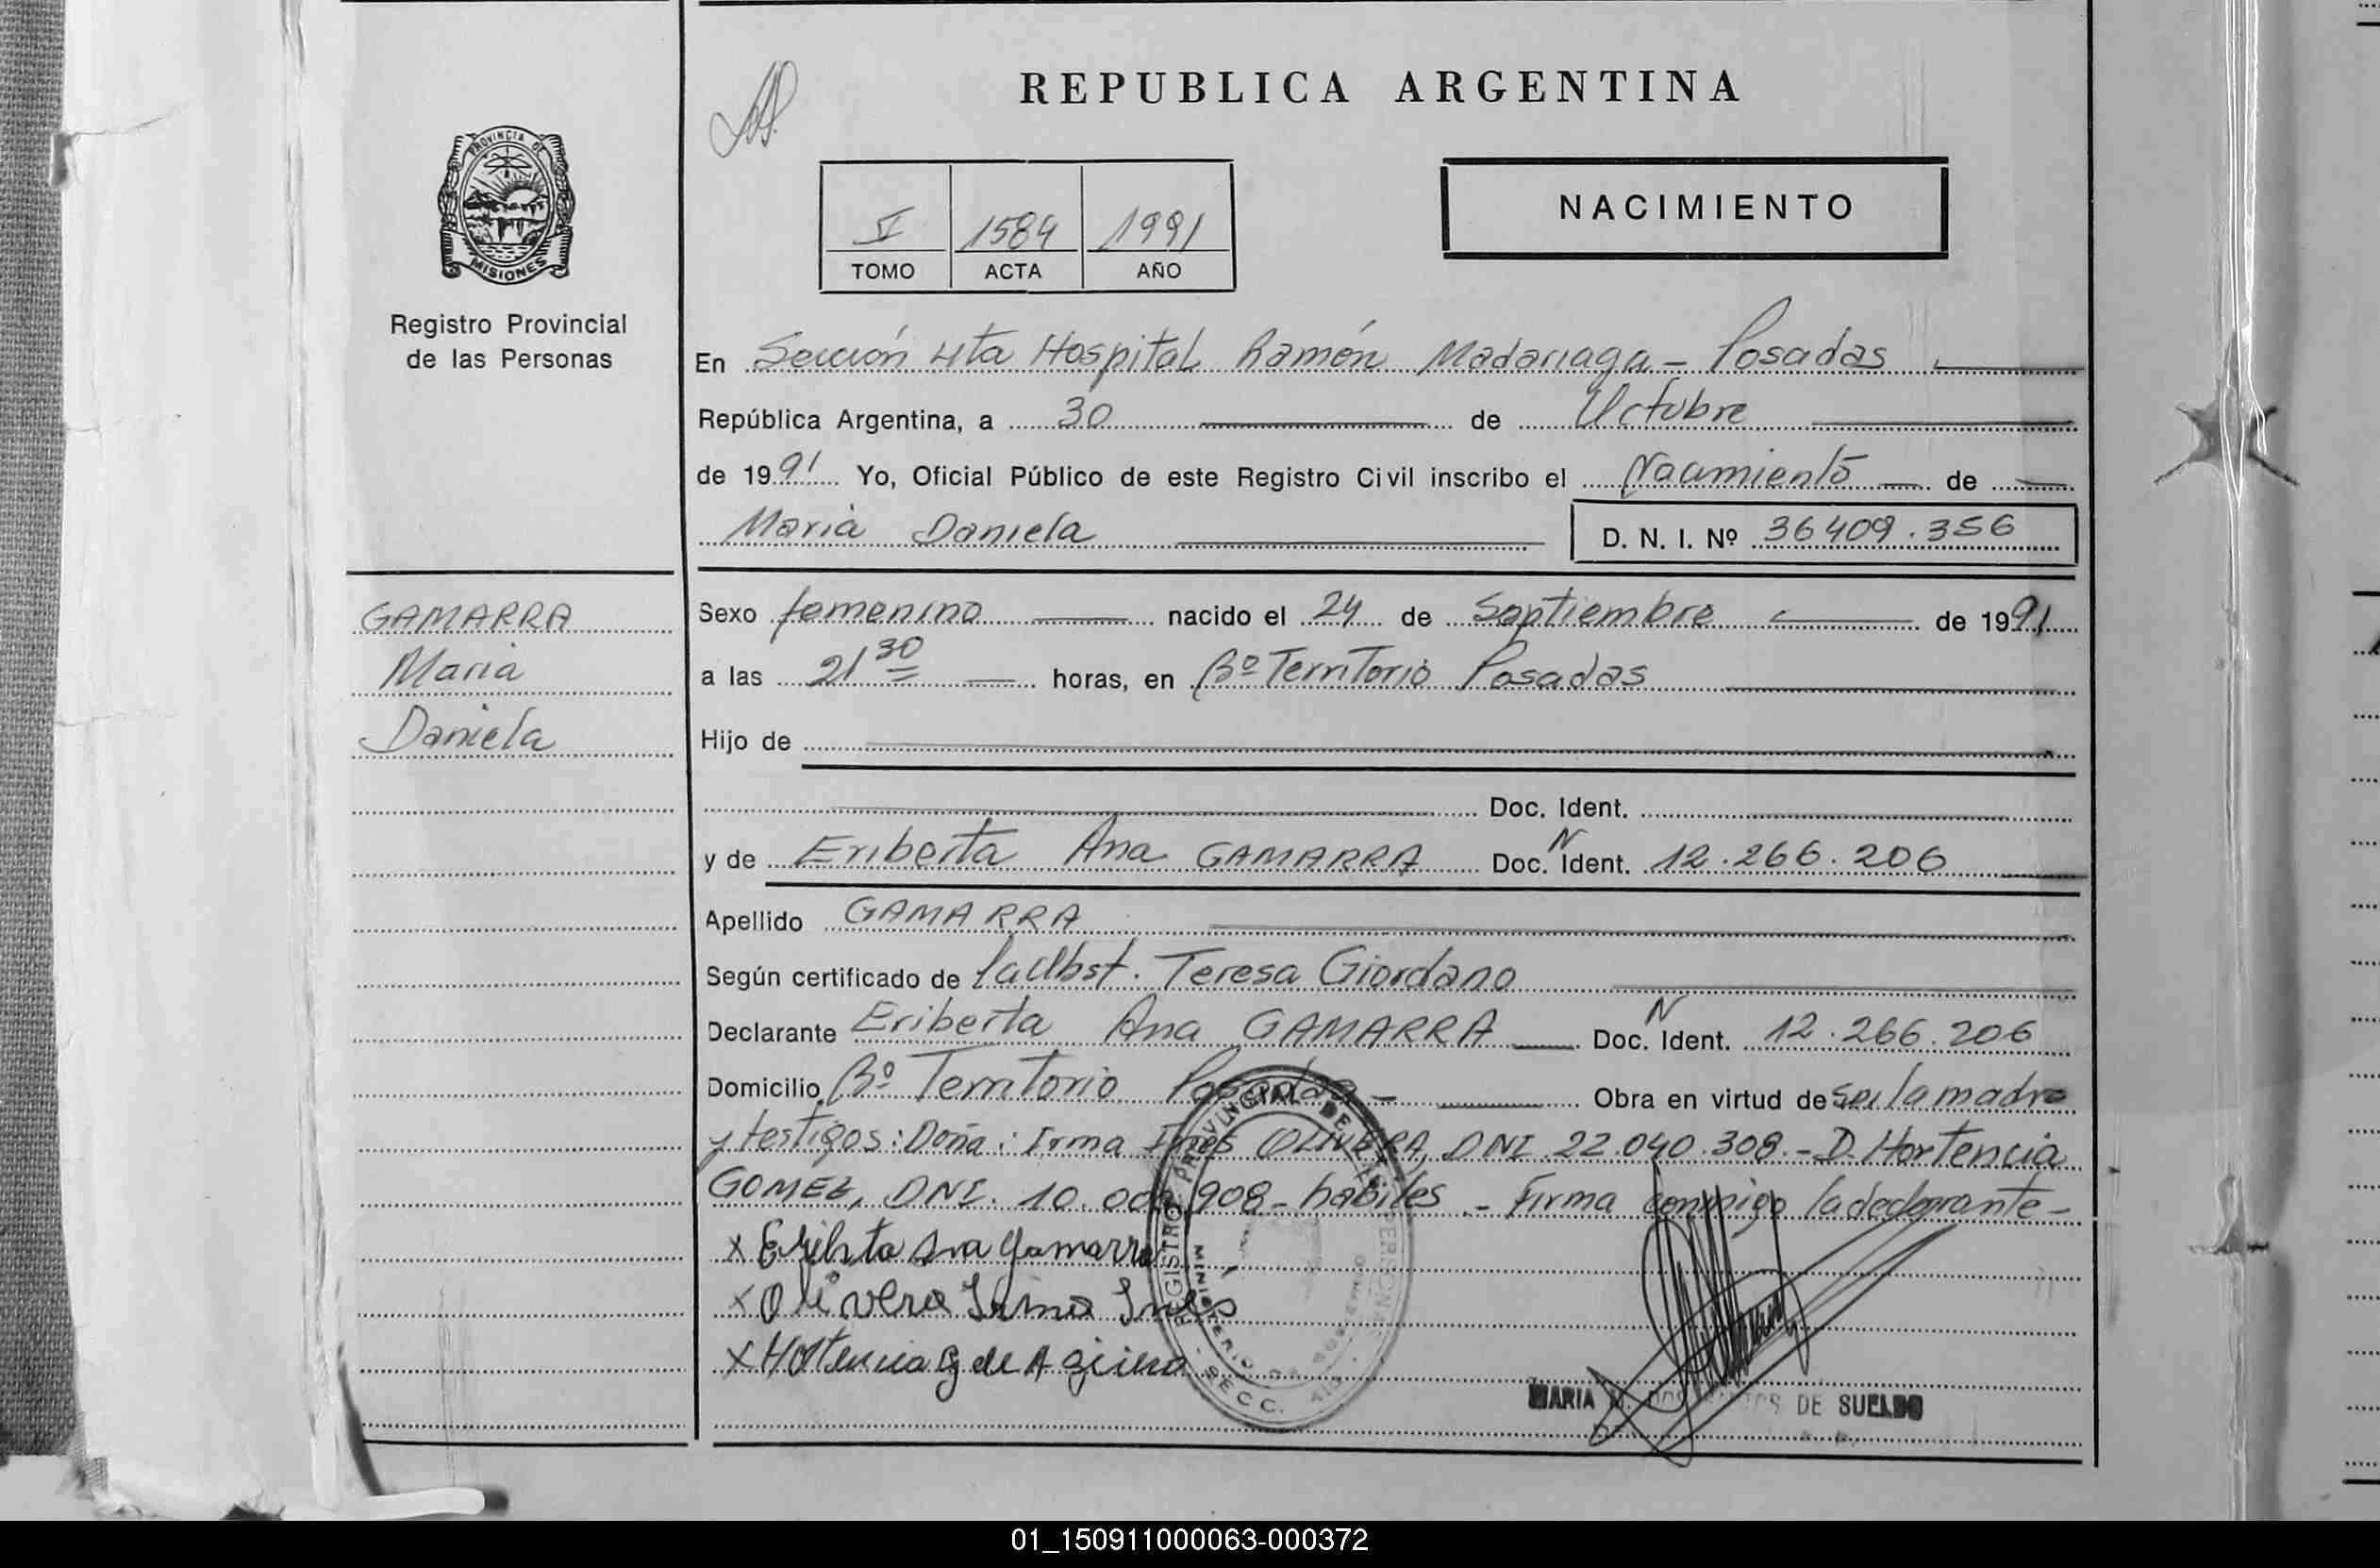 REPUBLICA ARGENTINA
PROVINCIA DE
MISIONES
Registro Provincial
de las Personas
V 1584 1991
TOMO ACTA AÑO
NACIMIENTO
En Sección 4ta Hospital Ramón Madariaga - Posadas
República Argentina, a 30 de Octubre
de 1991 Yo, Oficial Público de este Registro Civil inscribo el Nacimiento de
María Daniela D. N. I. Nº 36409.356
GAMARRA
Maria
Daniela
Sexo femenino nacido el 24 de Septiembre de 1991
a las 21 30 horas, en Bº Territorio Posadas
Hijo de
Doc. Ident.
y de Eriberta Ana GAMARRA Doc. N Ident. 12.266.206
Apellido GAMARRA
Según certificado de la Obst. Teresa Giordano
Declarante Eriberta Ana GAMARRA Doc. N Ident. 12.266.206
Domicilio Bº Territorio Posadas - Obra en virtud de ser la madre
y testigos: Doña: Irma Ines OLIVERA, DNI 22.040.308.- D. Hortencia
GOMEZ, DNI. 10.00 908 - habiles.- Firma conmigo la declarante -
x Eriberta Ana Gamarra
x Olivera Irma Ines
x Hortencia G de Agüero
REGISTRO PROVINCIAL DE LAS PERSONAS
MINISTERIO DE GOBIERNO
SECC. 4ta
MARIA DOS SANTOS DE SUELDO
01_150911000063-000372